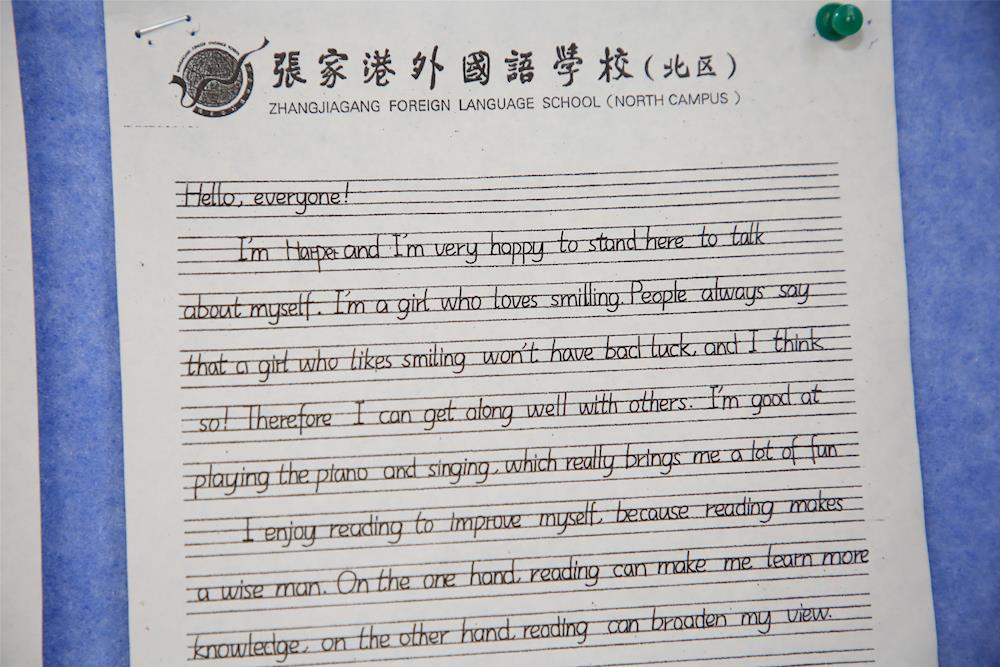 張家港外國語學校(北区)
ZHANGJIAGANG FOREIGN LANGUAGE SCHOOL (NORTH CAMPUS)
Hello, everyone!
I'm Harper and I'm very happy to stand here to talk
about myself. I'm a girl who loves smilling. People always say
that a girl who likes smiling won't have bad luck, and I think
so! Therefore I can get along well with others. I'm good at
playing the piano and singing, which really brings me a lot of fun
I enjoy reading to improve myself, because reading makes
a wise man. On the one hand, reading can make me learn more
knowledge, on the other hand, reading can broaden my view.